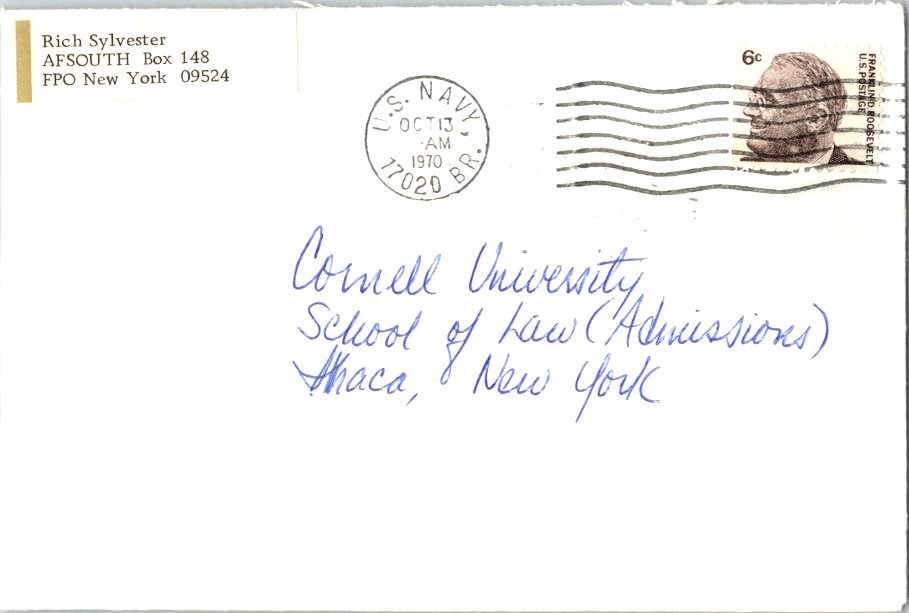 Rich Sylvester
AFSOUTH Box 148
FPO New York 09524
U.S. NAVY
OCT 13
AM
1970
17020 BR.
6c
FRANKLIN D. ROOSEVELT
U.S. POSTAGE
Cornell University
School of Law (Admissions)
Ithaca, New York